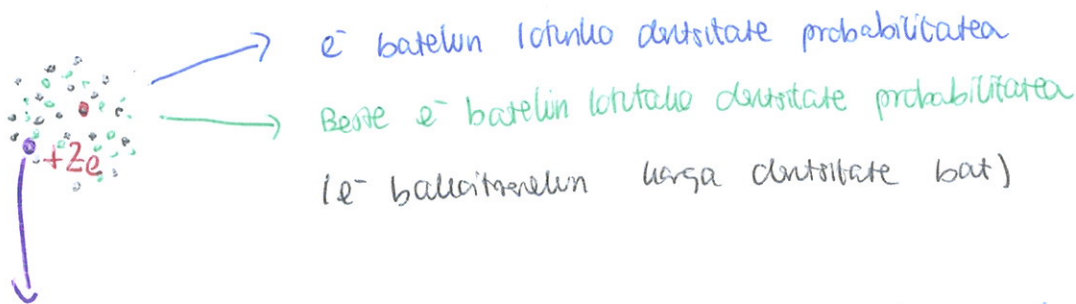 e⁻ batekin lotutako dentsitate probabilitatea
Beste e⁻ batekin lotutako dentsitate probabilitatea
+Ze
(e⁻ bakoitzarekin karga dentsitate bat)